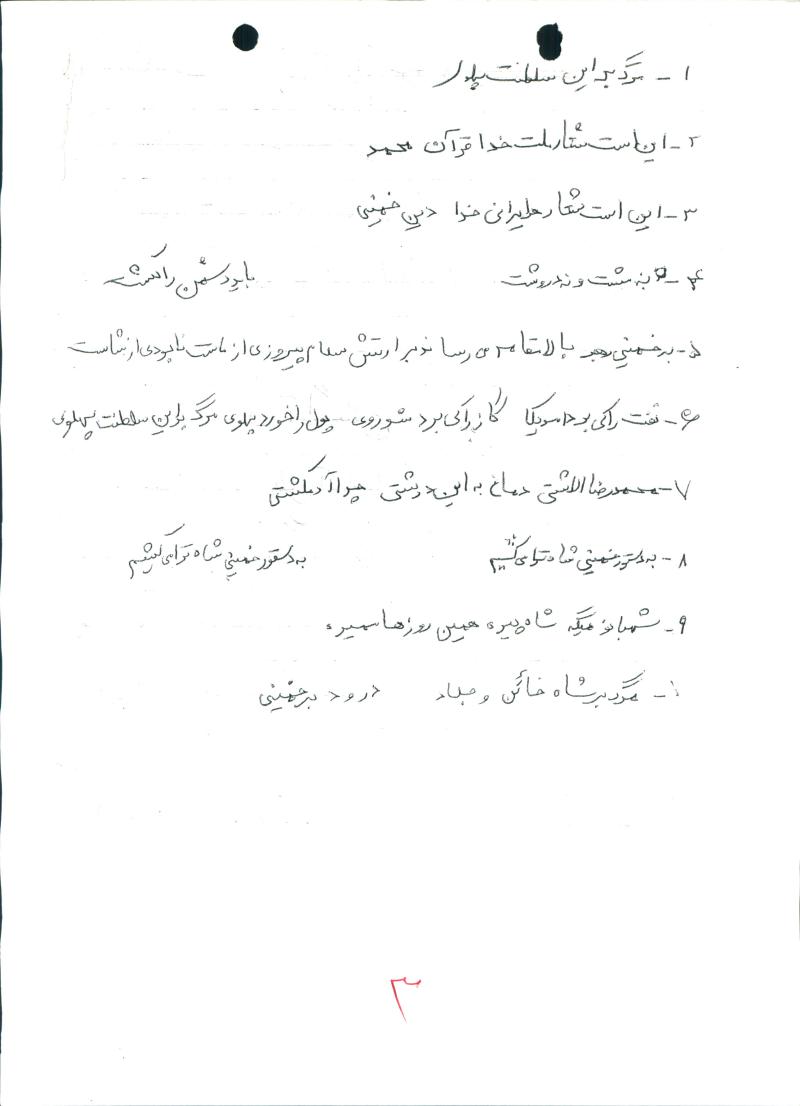 ۱- مرگ بر این سلطنت پهلوی
۲- این است شعار ملت خدا قرآن محمد
۳- این است شعار هر ایرانی خدا دین خمینی
۴- نه مشت و نه دروشت باید دشمن را کشت
۵- بر خمینی رهبر والامقام می رساند بر ارتش سلام پیروزی از ماست نابودی از شاست
۶- نفت را کی برد امریکا گاز را کی برد شوروی پول را خورد پهلوی مرگ بر این سلطنت پهلوی
۷- محمدرضا الاشتی دماغ به این درشتی چرا آدم کشتی
۸- به دستور خمینی شاه ترا می کشیم به دستور خمینی شاه ترا می کشیم
۹- شهبانو میگه شاه پیره همین روزها میمیره
۱۰- مرگ بر شاه خائن و جلاد درود بر خمینی
۳